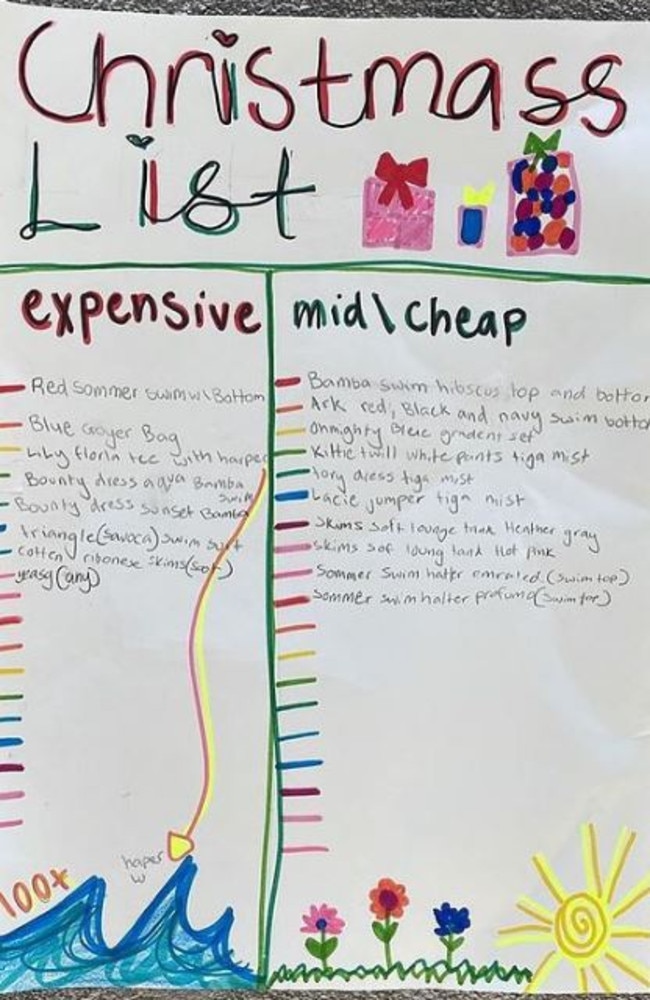 Christmass
List
expensive
Red sommer swim w\Bottom
Blue Goyer Bag
Lily floria tee with harper
Bounty dress aqua Bamba
swim
Bounty dress sunset Bamba
triangle (savoca) swim suit
cotten ribonese skims (set)
(any)
100x
haper
w
mid\cheap
Bamba swim hibscus top and bottom
Ark red, Black and navy swim bottom
Ohmighty Blue gradent set
Kittie twill white pants tiga mist
Iory dress tiga mist
Lacie jumper tiga mist
Skims soft lounge tank Heather gray
skims sof loung tank Hot Pink
Sommer swim halter (swim top)
sommer swim halter profumo (swim top)